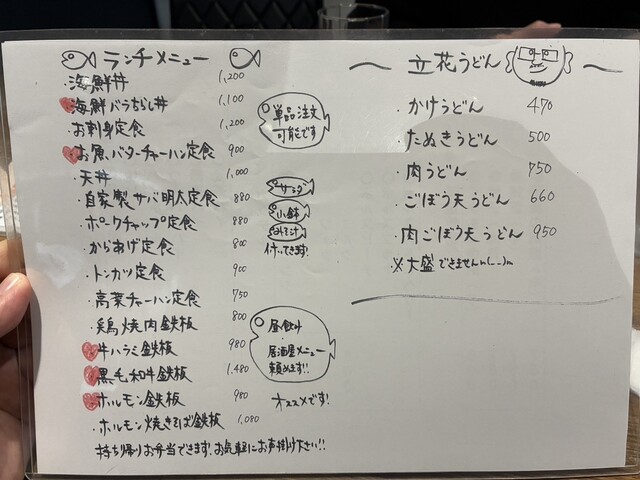 ランチメニュー
・海鮮丼 1,200
海鮮バラちらし丼 1,100
・お刺身定食 1,200
お魚、バターチャーハン定食 900
・天丼 1,000
・自家製サバ明太定食 880
・ポークチャップ定食 880
・からあげ定食 800
・トンカツ定食 900
・高菜チャーハン定食 750
・鶏焼肉鉄板 800
牛ハラミ鉄板 980
黒毛和牛鉄板 1,480
ホルモン鉄板 980
・ホルモン焼きそば鉄板 1,080
持ち帰りお弁当できます。お気軽にお声掛け下さい!!
単品注文
可能です
サラダ
小鉢
みそ汁
付いてきます!
昼飲み
・
居酒屋メニュー
頼めます!!
オススメです!
〜 立花うどん 〜
・かけうどん 470
・たぬきうどん 500
・肉うどん 750
・ごぼう天うどん 660
・肉ごぼう天うどん 950
・※大盛できませんm(__)m